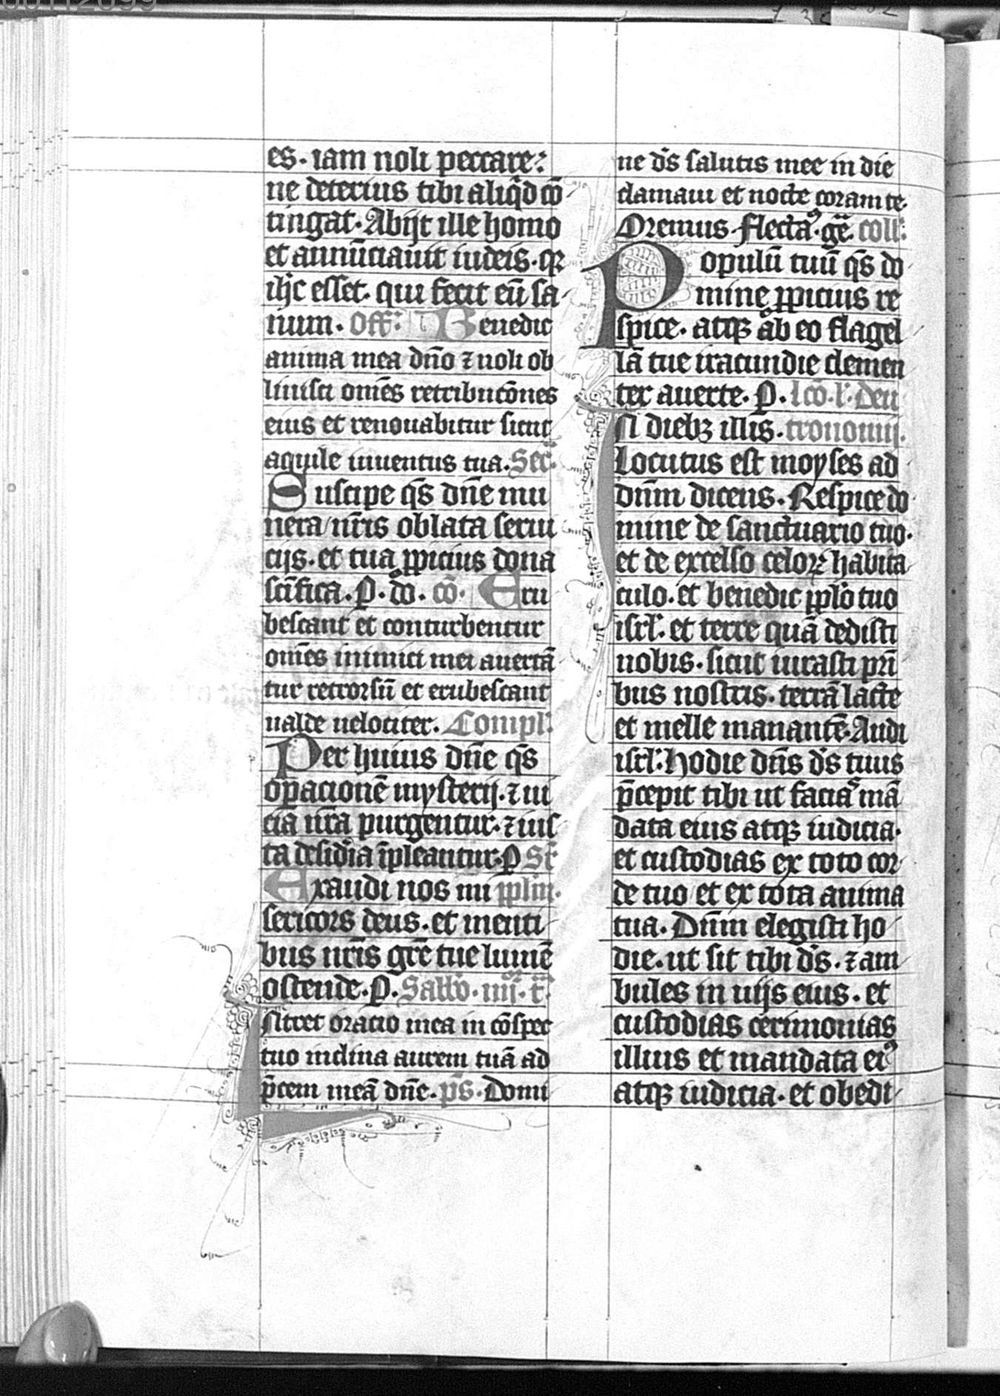 es. iam noli peccare:
ne deterius tibi aliq̄d cō
tingat. Abijt ille homo
et annūciauit iudeis. qr
ih̄c esset. qui fecit eū sa
num. Off: Benedic
anima mea dn̄o ⁊ noli ob
liuisci om̄es retribucōnes
eius et renouabitur sicut
aquile iuuentus tua. Sec̄.
Suscipe q̄s dn̄e mu
nera nr̄is oblata serui
cijs. et tua ꝓpicius dona
sc̄ifica. P. do. cō. Eru
bescant et conturbentur
om̄es inimici mei auertā
tur retrorsū et erubescant
ualde uelociter. Compl.
Per huius dn̄e q̄s
oꝑacionē mysterij. ⁊ ui
cia nr̄a purgentur. ⁊ ius
ta desid̄ia īpleantur. P Sr̄
Exaudi nos mi pp̄lm.
sericors deus. et menti
bus nr̄is gr̄e tue lumē
ostende. P. Sabb̄o. iiij. t̄.
Intret oracio mea in cōspec
tuo inclina aurem tuā ad
p̄cem meā dn̄e. p̄s. Domi
ne d̄s salutis mee in die
clamaui et nocte coram te.
Oremus Flectaꝰ. gē. coll:
Populū tuū q̄s do
mine ꝓpicius re
spice. atqꝫ ab eo flagel
la tue iracundie clemen
ter auerte. P. lcō. l. Deu
In diebꝫ illis. tronomij.
Locutus est moyses ad
dn̄m dicens. Respice do
mine de sanctuario tuo.
et de excelso celoꝝ habita
culo. et benedic pp̄lo tuo
isrl. et terre quā dedisti
nobis. sicut iurasti pr̄i
bus nostris. terrā lacte
et melle manantē. Audi
isrl. Hodie dn̄s d̄s tuus
p̄cepit tibi ut faciaꝰ mā
data eius atqꝫ iudicia.
et custodias ex toto cor
de tuo et ex tota anima
tua. Dn̄m elegisti ho
die. ut sit tibi d̄s. ⁊ am
bules in uijs eius. et
custodias cerimonias
illius et mandata eiꝰ
atqꝫ iudicia. et obedi